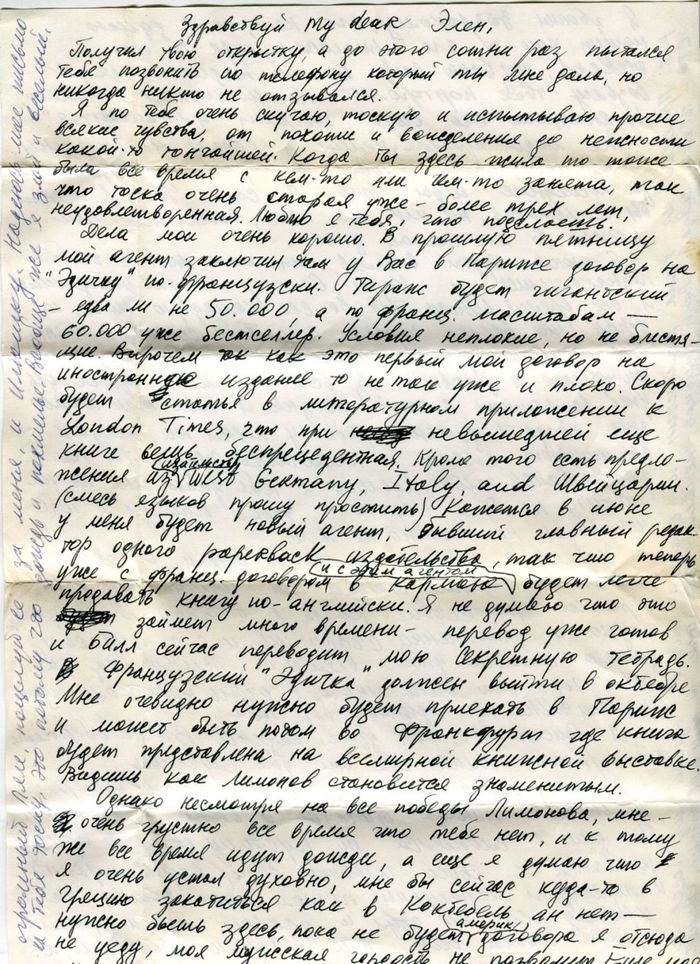 Здравствуй my dear Элен,
Получил твою открытку, а до этого сотни раз пытался
тебе позвонить по телефону который ты мне дала, но
никогда никто не отзывался.
Я по тебе очень скучаю, тоскую и испытываю прочие
всякие чувства, от похоти и вожделения до нежности
какой-то тончайшей. Когда ты здесь жила то тоже
была все время с кем-то или чем-то занята, так
что тоска очень старая уже - более трех лет,
неудовлетворенная. Люблю я тебя, что поделаешь.
Дела мои очень хорошо. В прошлую пятницу
мой агент заключил там у Вас в Париже договор на
"Эдичку" по-французски. Тираж будет гигантский
- едва ли не 50.000, а по франц. масштабам —
60.000 уже бестселлер. Условия неплохие, но не блистя-
щие. Впрочем так как это первый мой договор на
иностранное издание то не так уже и плохо. Скоро
будет статья в литературном приложении к
London Times, что при невышедшей еще
книге вещь беспрецедентная. Кроме того есть предло-
жения из издательств West Germany, Italy, and Швейцарии.
(смесь языков прошу простить) Кажется в июне
у меня будет новый агент, бывший главный редак-
тор одного издательства, так что теперь
уже с франц. договором в кармане и с этим агентом будет легче
продавать книгу по-английски. Я не думаю что это
займет много времени - перевод уже готов
и Билл сейчас переводит мою секретную тетрадь.
Французский "Эдичка" должен выйти в октябре
Мне очевидно нужно будет приехать в Париж
и может быть потом во Франкфурт где книга
будет представлена на всемирной книжной выставке.
Видишь как Лимонов становится знаменитым.
Однако несмотря на все победы Лимонова, мне -
очень грустно все время что тебе нет, и к тому
же все время идут дожди, а еще я думаю что
я очень устал духовно, мне бы сейчас куда-то в
Грецию закатиться как в Коктебель ан нет —
нужно быть здесь, пока не будет америк. договора я отсюда
не уеду, моя мужская гордость не позволит
огромный Рем, поцелуй ее за меня, и надеюсь мое письмо
тоску, это потому что дождь и похмелье. Вообще же я злой и веселый.